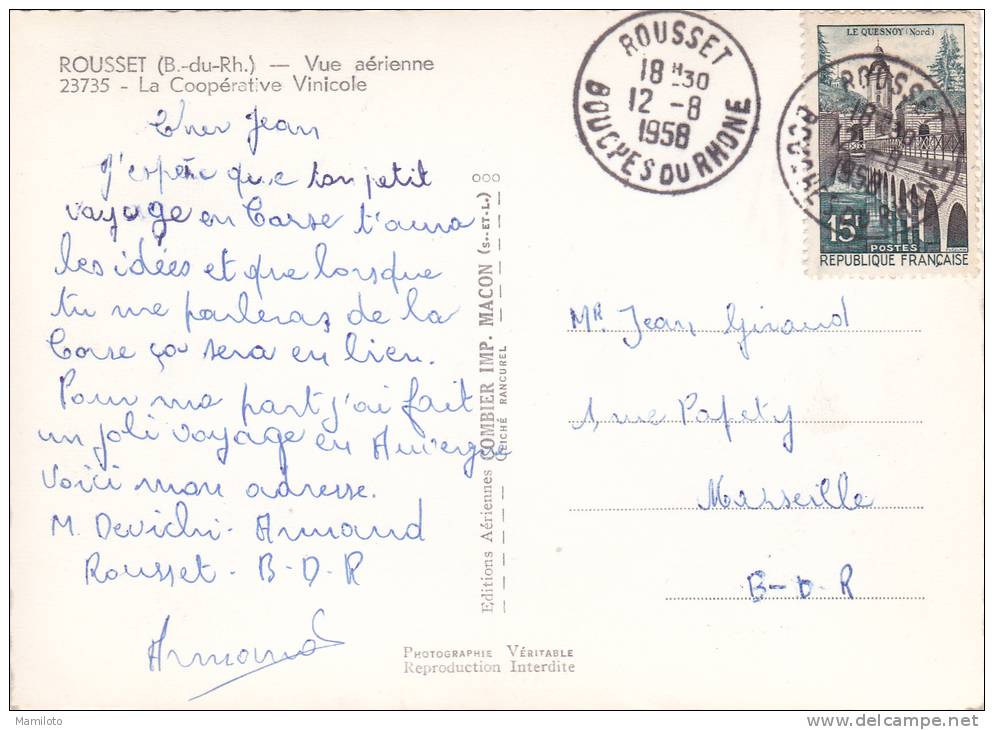 ROUSSET (B.-du-Rh.) — Vue aérienne
23735 - La Coopérative Vinicole
Cher Jean
J'espère que ton petit
voyage en Corse t'aura
les idées et que lorsque
tu me parleras de la
Corse ça sera en bien.
Pour ma part j'ai fait
un joli voyage en Auvergne
Voici mon adresse.
M. Devichi - Armand
Rousset - B-D-R
Armand
ooo
Editions Aériennes COMBIER IMP. MACON (S.-ET-L.)
CLICHÉ RANCUREL
PHOTOGRAPHIE VÉRITABLE
Reproduction Interdite
ROUSSET
18 H 30
12 -8
1958
BOUCHES DU RHONE
LE QUESNOY (Nord)
15F
POSTES
RÉPUBLIQUE FRANÇAISE
ROUSSET
18 H 30
12 -8
1958
Mr Jean Giraud
1 rue Papety
Marseille
B-D-R
Mamiloto
http://www.delcampe.net